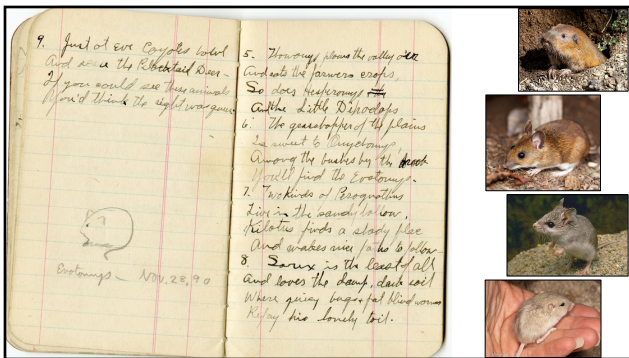 9. Just at Eve Coyotes howl
And the Blacktail Deer –
If you could see these animals
You'd think the sight was queer
Evotomys – Nov. 28, 90
5. Thomomys plows the valley o'er
And eats the farmers crops,
So does Hesperomys
And the Little Dipodops
6. The grasshopper of the plains
Is sweet to Onychomys,
Among the bushes by the brook
You'll find the Evotomys.
7. Two kinds of Perognathus
Live in the sandy hollow,
finds a shady place
And makes nice paths to follow
8 Sorex is the least of all
And loves the damp, dark soil
Where juicy bugs & fat blind worms
his lonely toil.